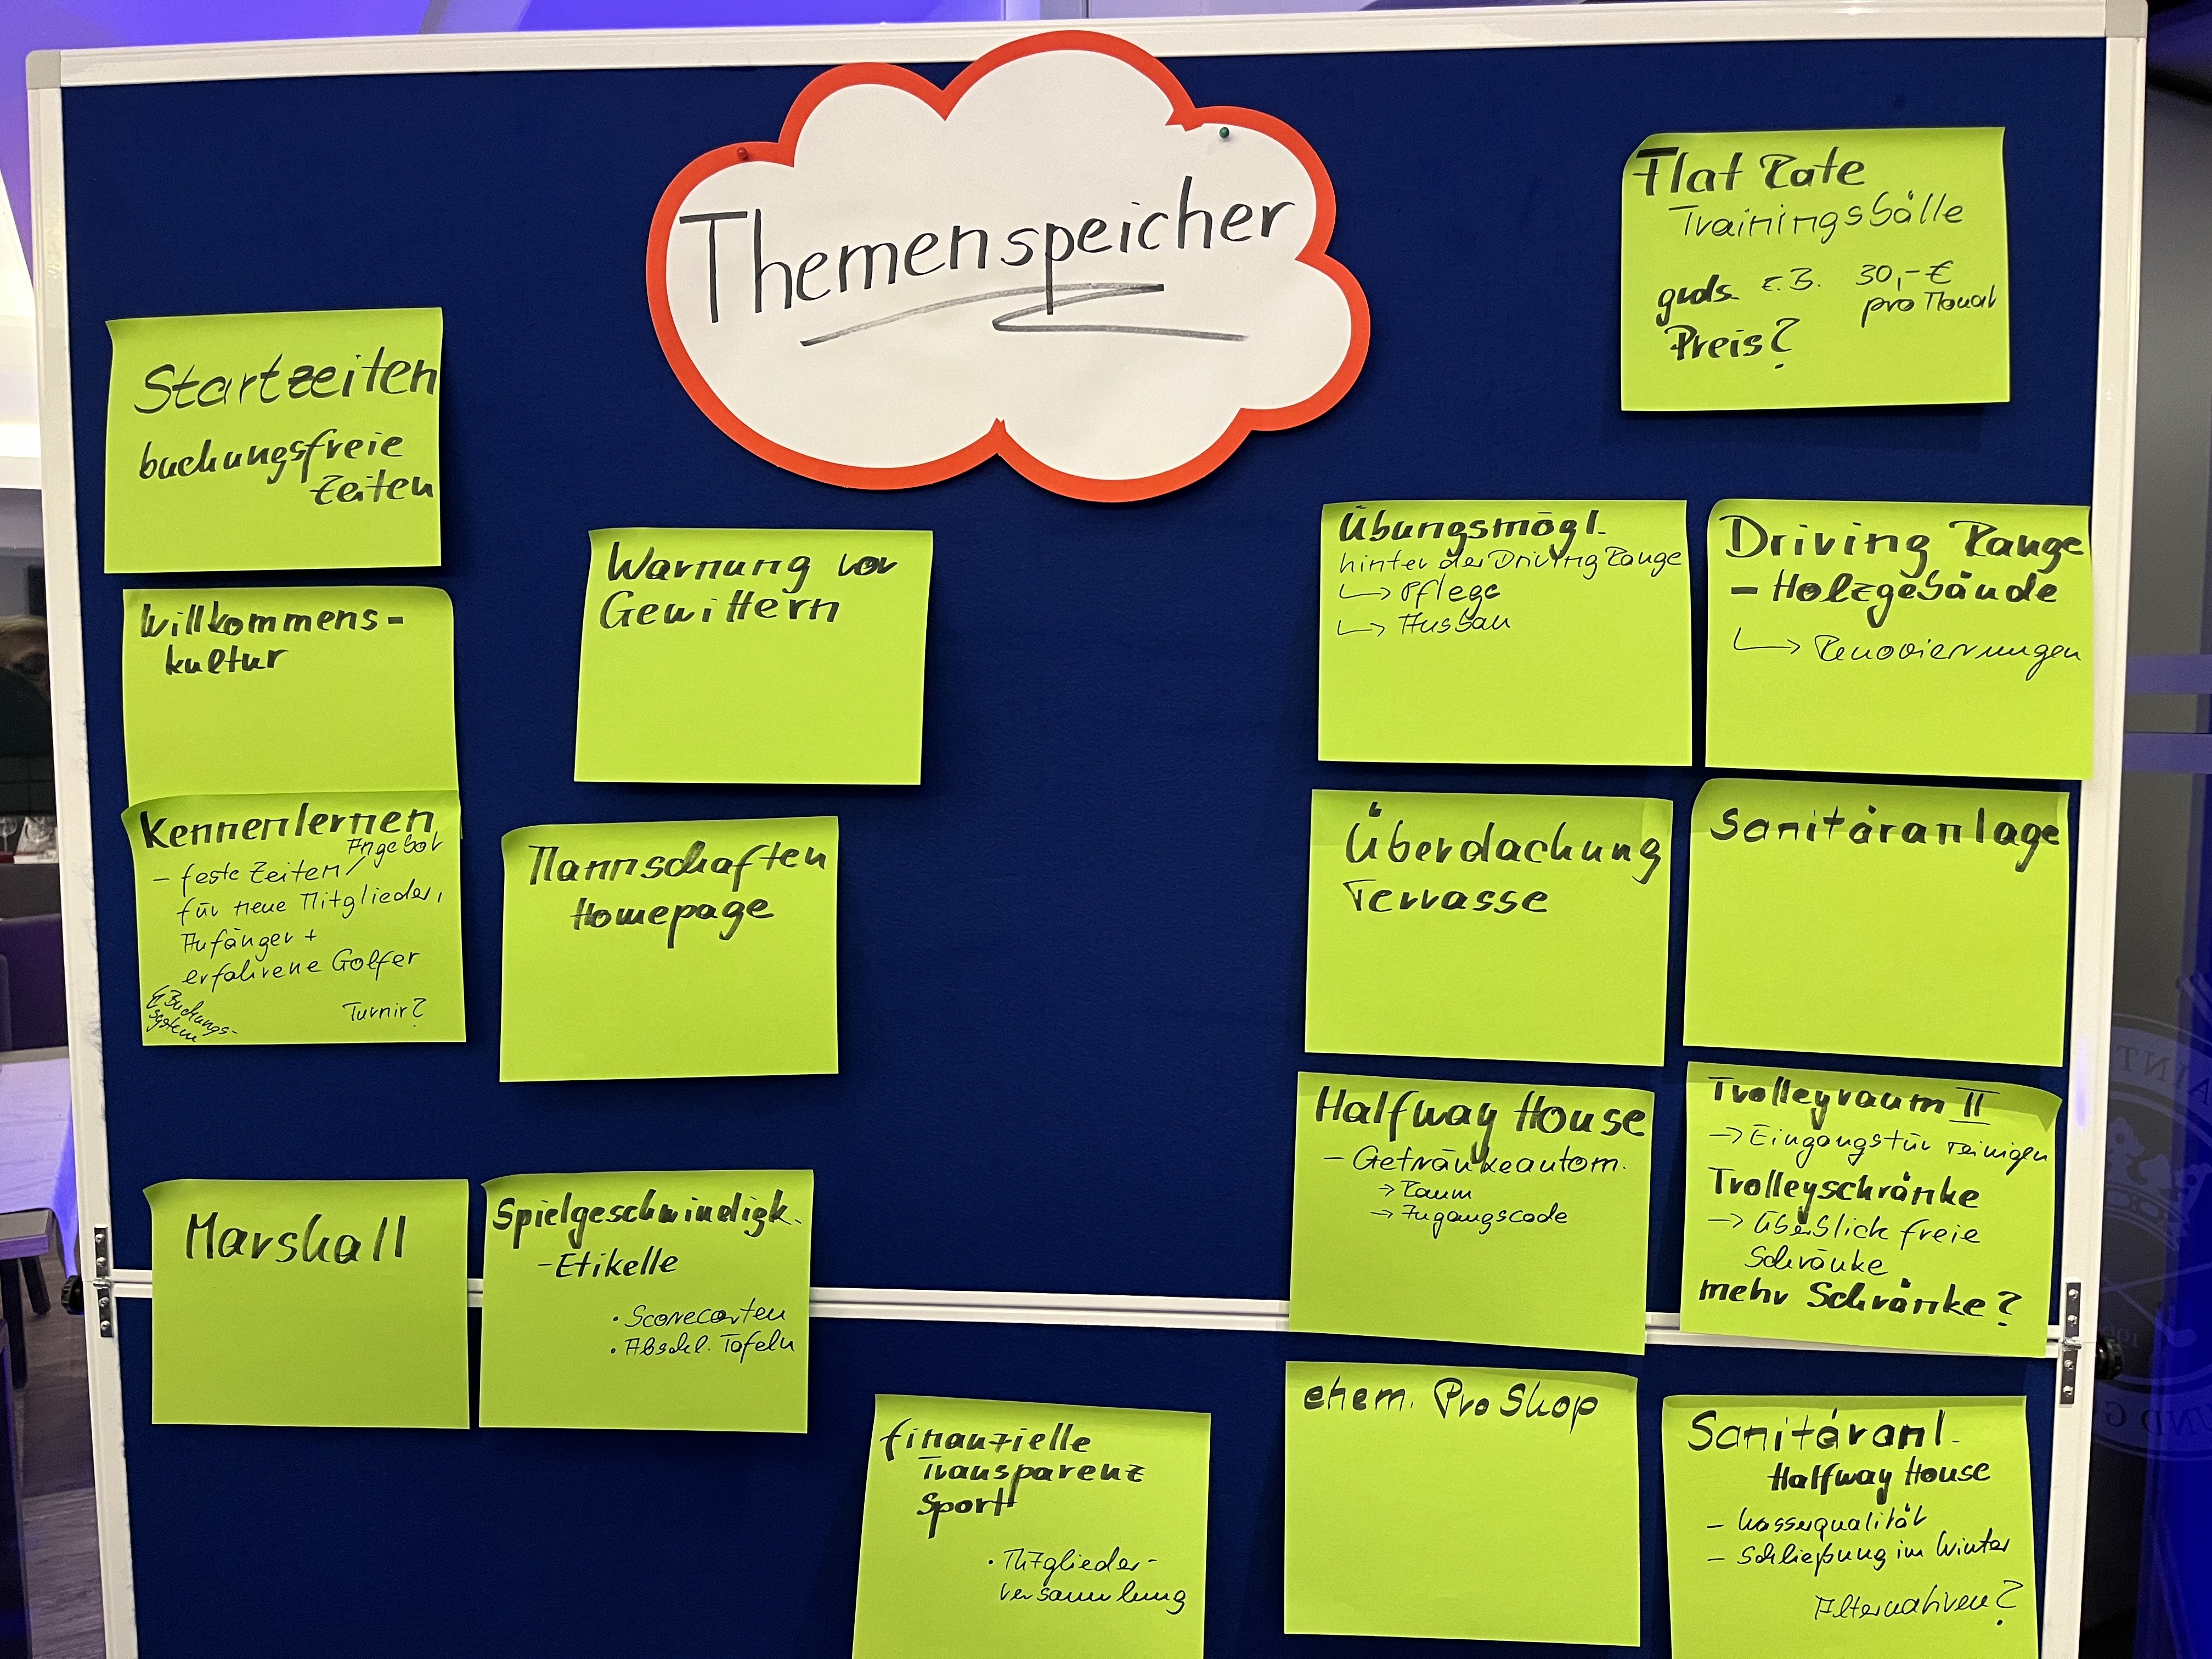 Themenspeicher
Flat Rate
Trainingsbälle
z.B. 30,-€
pro Monat
Preis?
Startzeiten
buchungsfreie
Zeiten
Willkommens-
kultur
Kennenlernen
Angebot
- feste Zeiten/
für neue Mitglieder,
Anfänger +
erfahrene Golfer
Buchungs-
system
Turnir?
Warnung vor
Gewittern
Mannschaften
Homepage
Marshall
Spielgeschwindigk.
- Etikette
• Scorecarten
• Abschl. Tafeln
finanzielle
Transparenz
Sport
• Mitglieder-
versammlung
Übungsmögl.
hinter der Driving Range
↳ Pflege
↳ Ausbau
Driving Range
- Holzgebäude
↳ Renovierungen
Überdachung
Terrasse
Sanitäranlage
Halfway House
- Getränkeautom.
→ Raum
→ Zugangscode
Trolleyraum II
→ Eingangstür reinigen
Trolleyschränke
→ Überblick freie
Schränke
mehr Schränke?
ehem. Pro Shop
Sanitäranl.
Halfway House
- Wasserqualität
- Schließung im Winter
Alternativen?